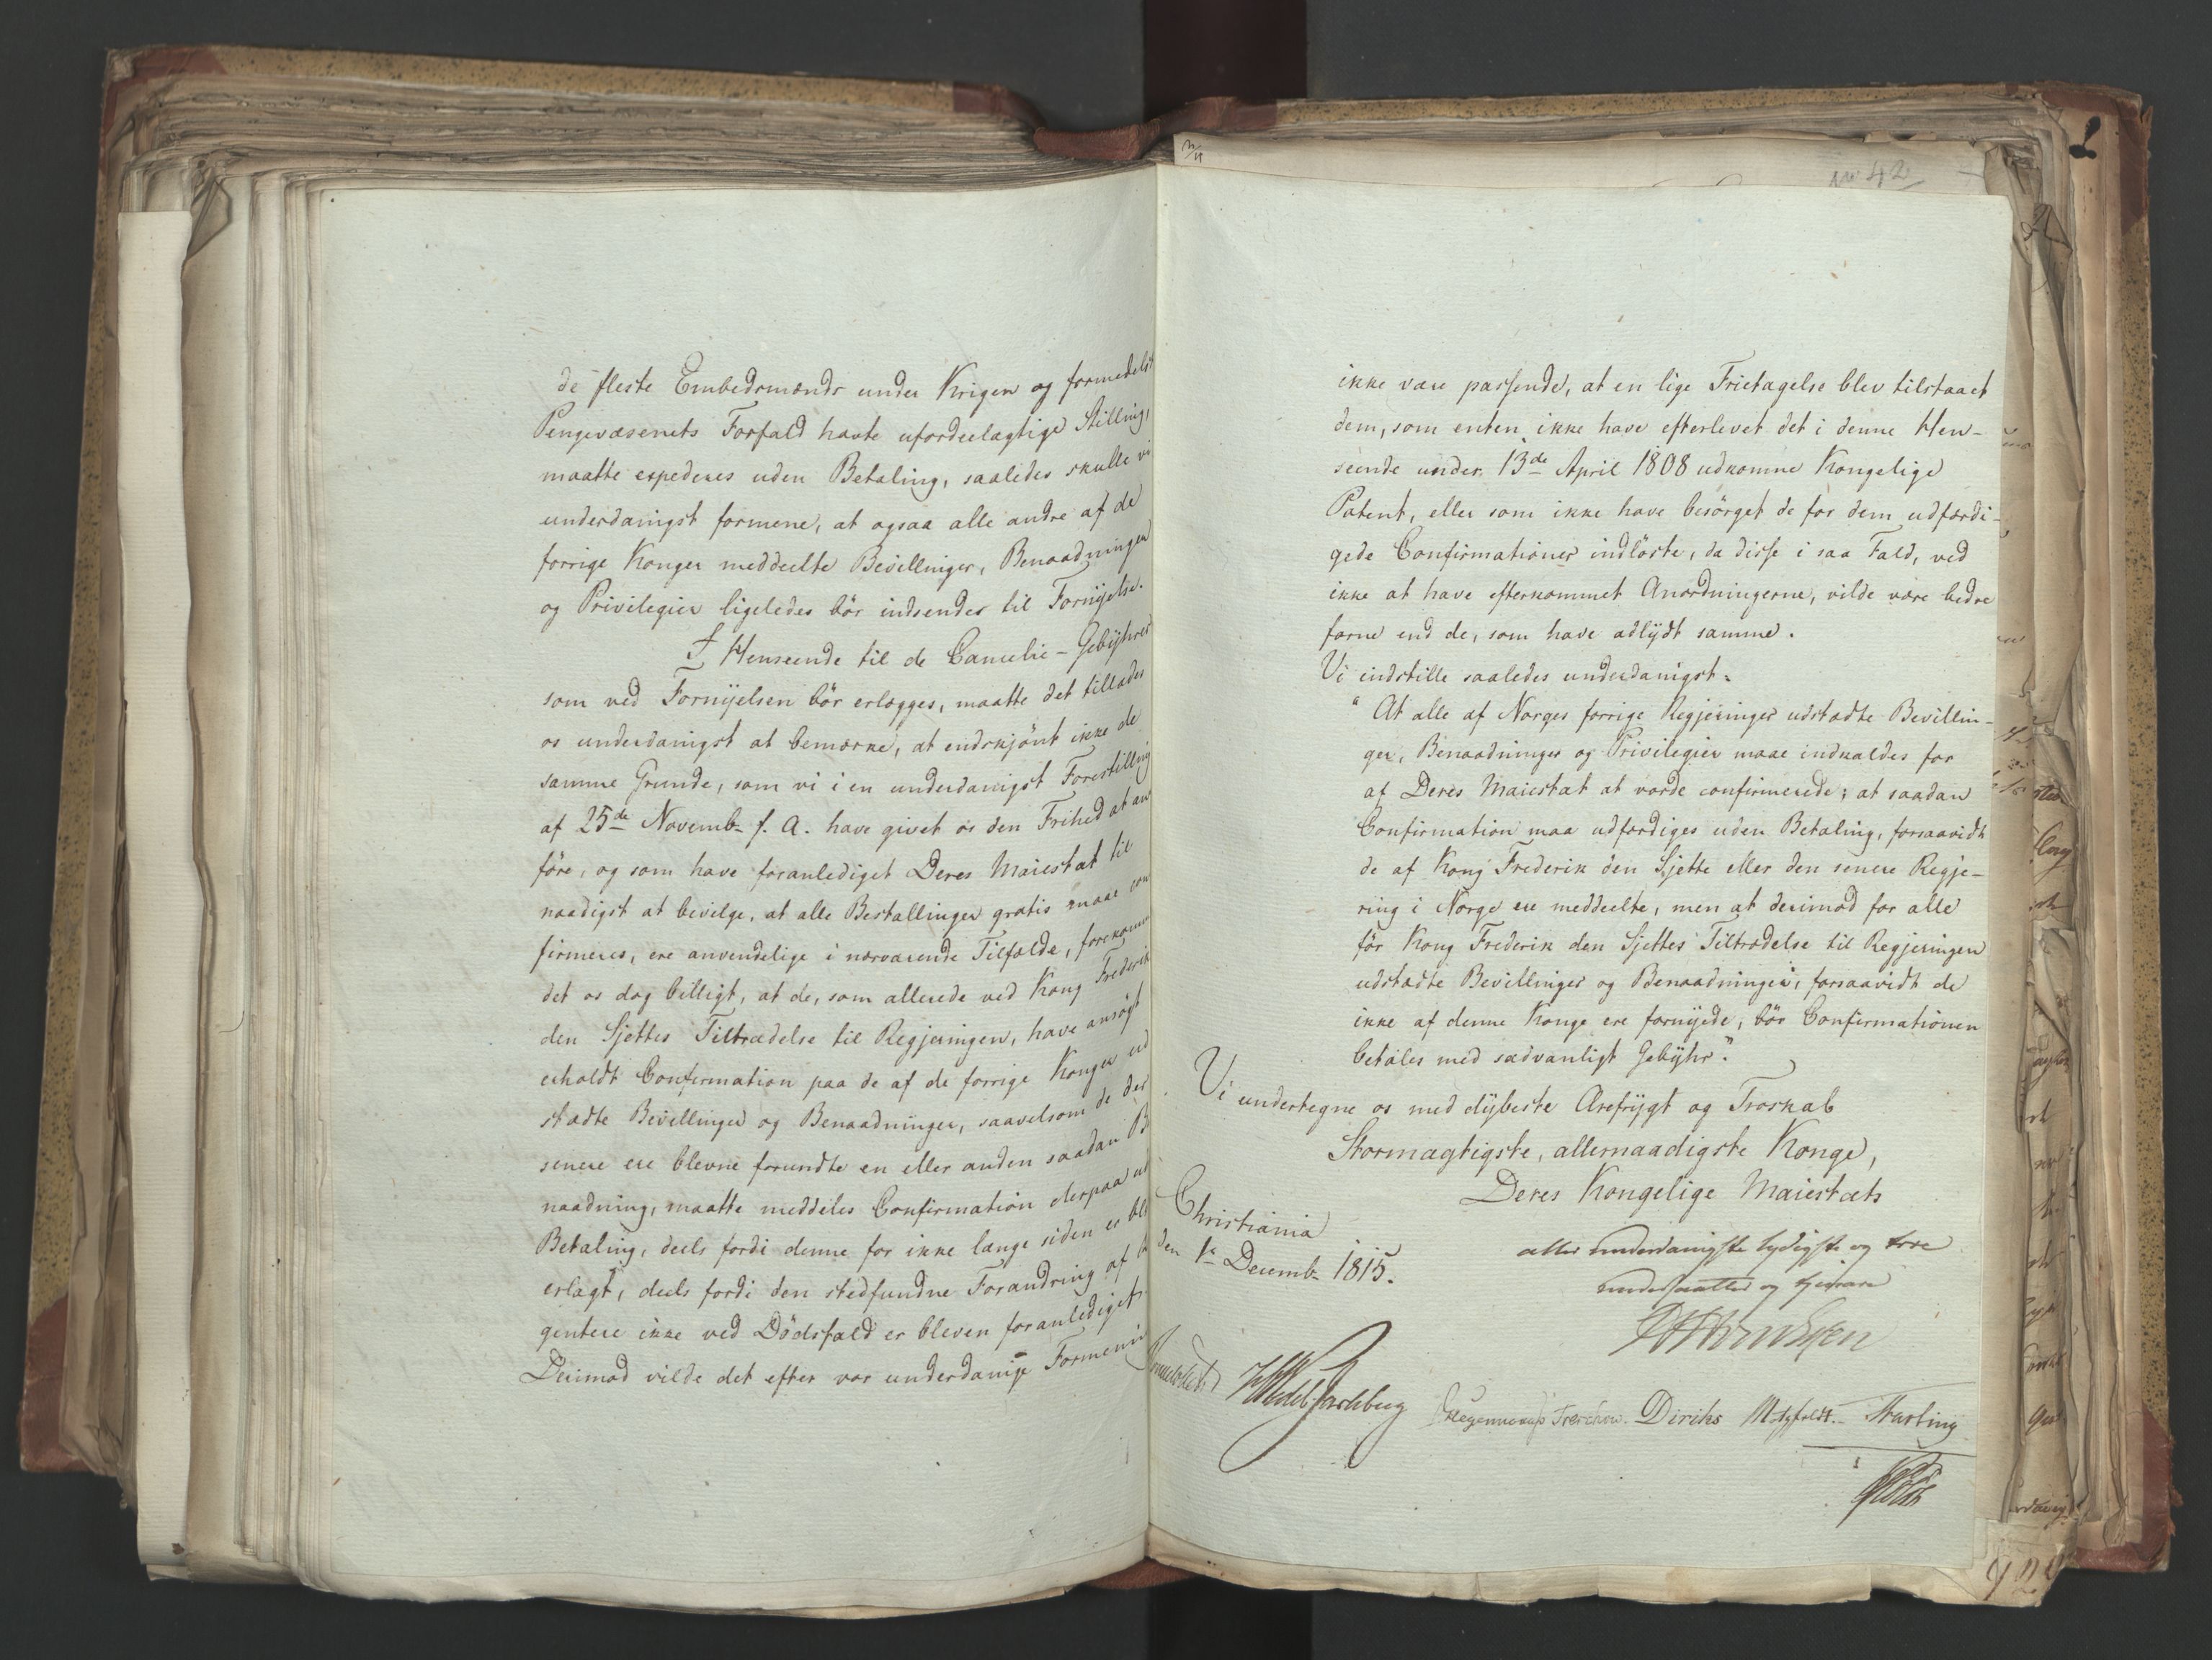 de fleste Embedsmænds under Krigen og formedelst
Pengevæsenets Forfald havte ufordeelagtige Stilling,
maatte expederes uden Betaling, saaledes skulle vi
underdanigst formene, at ogsaa alle andre af de
forrige Konger meddeelte Bevillinger, Benaadninger
og Privilegier ligeledes bör indsendes til Fornyelse.
I Henseende til de Cancelie-Gebyhrer
som ved Fornyelsen bör erlægges, maatte det tillades
os underdanigst at bemærke, at endskjönt ikke de
samme Grunde, som vi i en underdanigst Forestilling
af 25de Novembr f. A. have givet os den Frihed at an
före, og som have foranlediget Deres Maiestæt til
naadigst at bevilge, at alle Bestallinger gratis maae con
firmeres, ere anvendelige i nærværende Tilfælde, forekomme
det os dog billigt, at de, som allerede ved Kong Frederik
den Sjettes Tiltrædelse til Regjeringen, have ansögt
erholdt Confirmation paa de af de forrige Konger ud
stædte Bevillinger og Benaadninger, saavelsom de der
senere ere blevne forundte en eller anden saadan B
naadning, maatte meddeles Confirmation derpaa ud
Betaling, deels fordi denne for ikke længe siden er ble
erlagt, deels fordi den stedfundne Forandring af
gentere ikke ved Dödsfald er bleven foranlediget.
Derimod vilde det efter vor underdanige Formening
No 42
ikke være passende, at en lige Frietagelse blev tilstaaet
dem, som enten ikke have efterlevet det i denne Hen-
seende under 13de April 1808 udkomne Kongelige
Patent, eller som ikke have besörget de for dem udfærdi-
gede Confirmationer indlöste, da disse i saa Fald, ved
ikke at have efterkommet Anordningerne, vilde være bedre
farne end de, som have adlydt samme.
Vi indstille saaledes underdanigst:
"At alle af Norges forrige Regjeringer udstædte Bevillin-
ger, Benaadninger og Privilegier maae indkaldes for
af Deres Maiestæt at vorde confirmerede; at saadan
Confirmation maa udfærdiges uden Betaling, forsaavidt
de af Kong Frederik den Sjette eller den senere Regje-
ring i Norge ere meddeelte, men at derimod for alle
för Kong Frederik den Sjettes Tiltrædelse til Regjeringen
udstædte Bevillinger og Benaadninger, forsaavidt de
ikke af denne Konge ere fornyede, bör Confirmationen
betales med sædvanligt Gebyhr."
Vi undertegne os med dybeste Ærefrygt og Troskab
Stormægtigste, allernaadigste Konge,
Deres Kongelige Maiestæts
Christiania
den 1e Decembr 1815.
allerunderdanigste lydigste og troe
undersaatter og tjenere
Sommerhielm
HWedel Jarlsberg
Hegermann
Treschow. Diriks Motzfeldt.